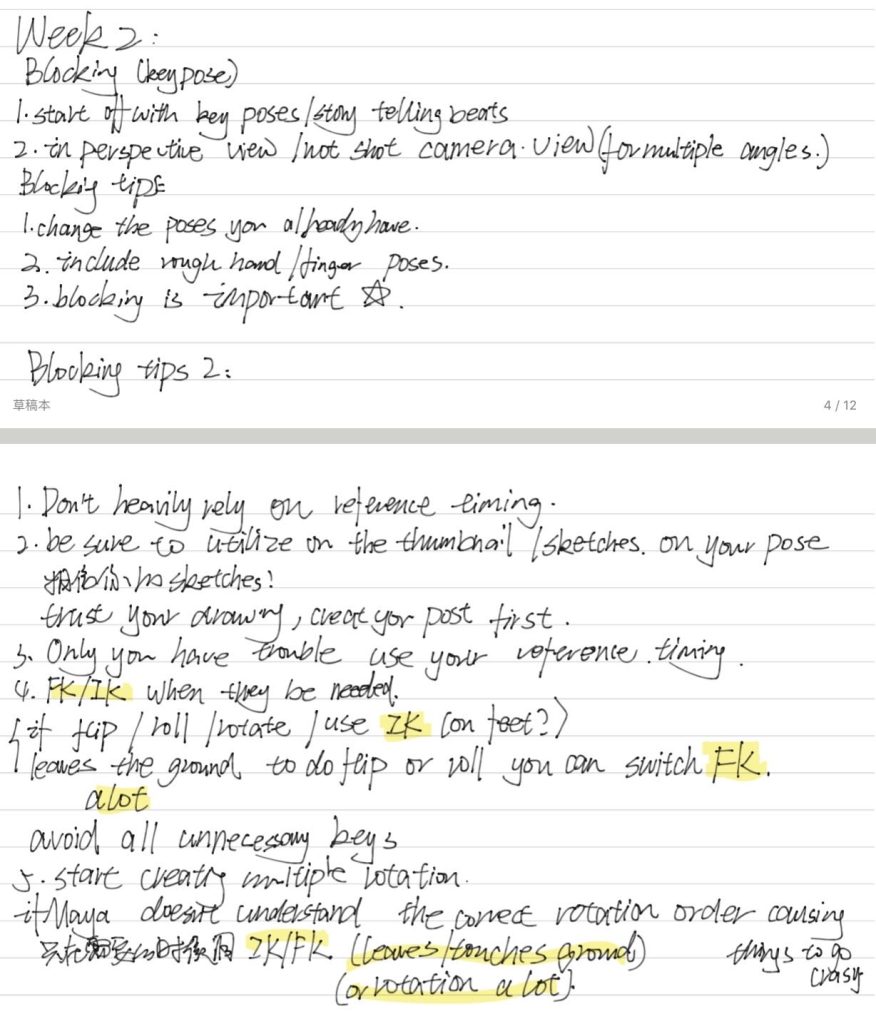 Week 2:
Blocking (key pose)
1. start off with key poses/story telling beats
2. in perspective view /not shot camera view (for multiple angles.)
Blocking tips
1. change the poses you already have.
2. include rough hand/finger poses.
3. blocking is important ☆.
Blocking tips 2:
草稿本
4 / 12
1. Don't heavily rely on reference timing.
2. be sure to utilize on the thumbnail /sketches. on your pose
sketches!
trust your drawing, creat yor post first.
3. Only you have trouble use your reference timing.
4. FK/IK when they be needed.
if flip / roll /rotate /use IK (on feet?)
leaves the ground to do flip or roll you can switch FK.
alot
avoid all unnecessary keys
5. start creating multiple rotation.
if Maya doesn't understand the correct rotation order causing
things to go
crasy
只在需要的时候用 IK/FK. (leaves/touches ground)
(or rotation a lot).